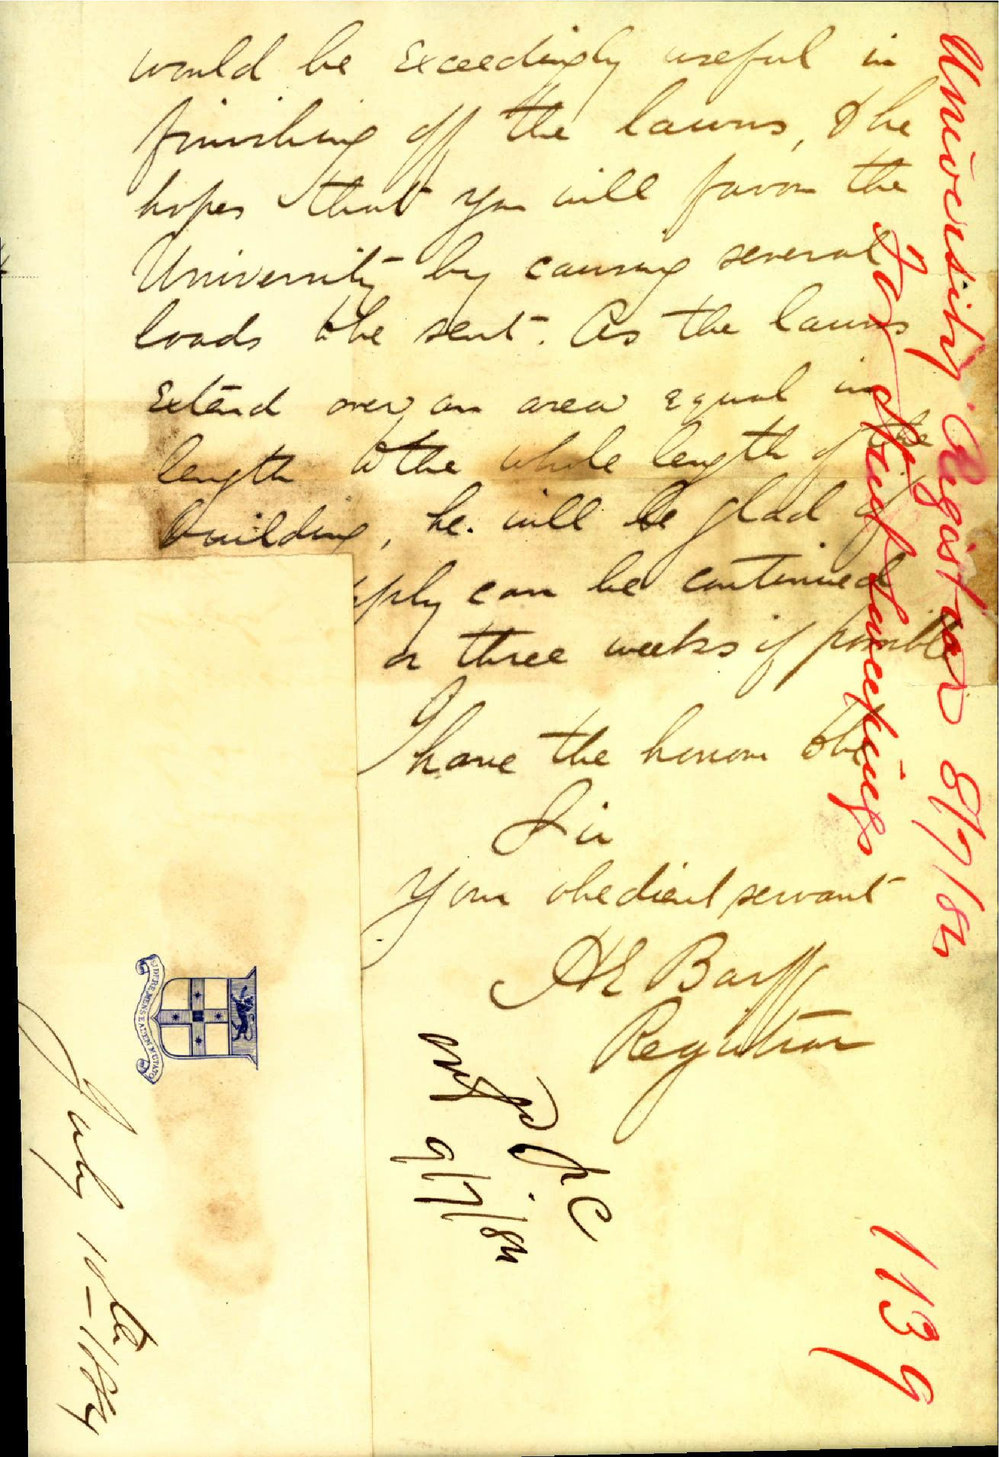 would be exceedingly useful in
finishing off the lawns, & he
hopes that you will favor the
University by causing several
loads to be sent. As the lawns
extend over an area equal in
length to the whole length of the
building, he will be glad if
pply can be continued
or three weeks if possible
I have the honor to be
Sir
Your obedient servant
HE Barff
Registrar
University Registrar 8/7/84
For Street Sweepings
1139
9/7/84
SIDERE MENS EADEM MUTATO
July 10th - 1884